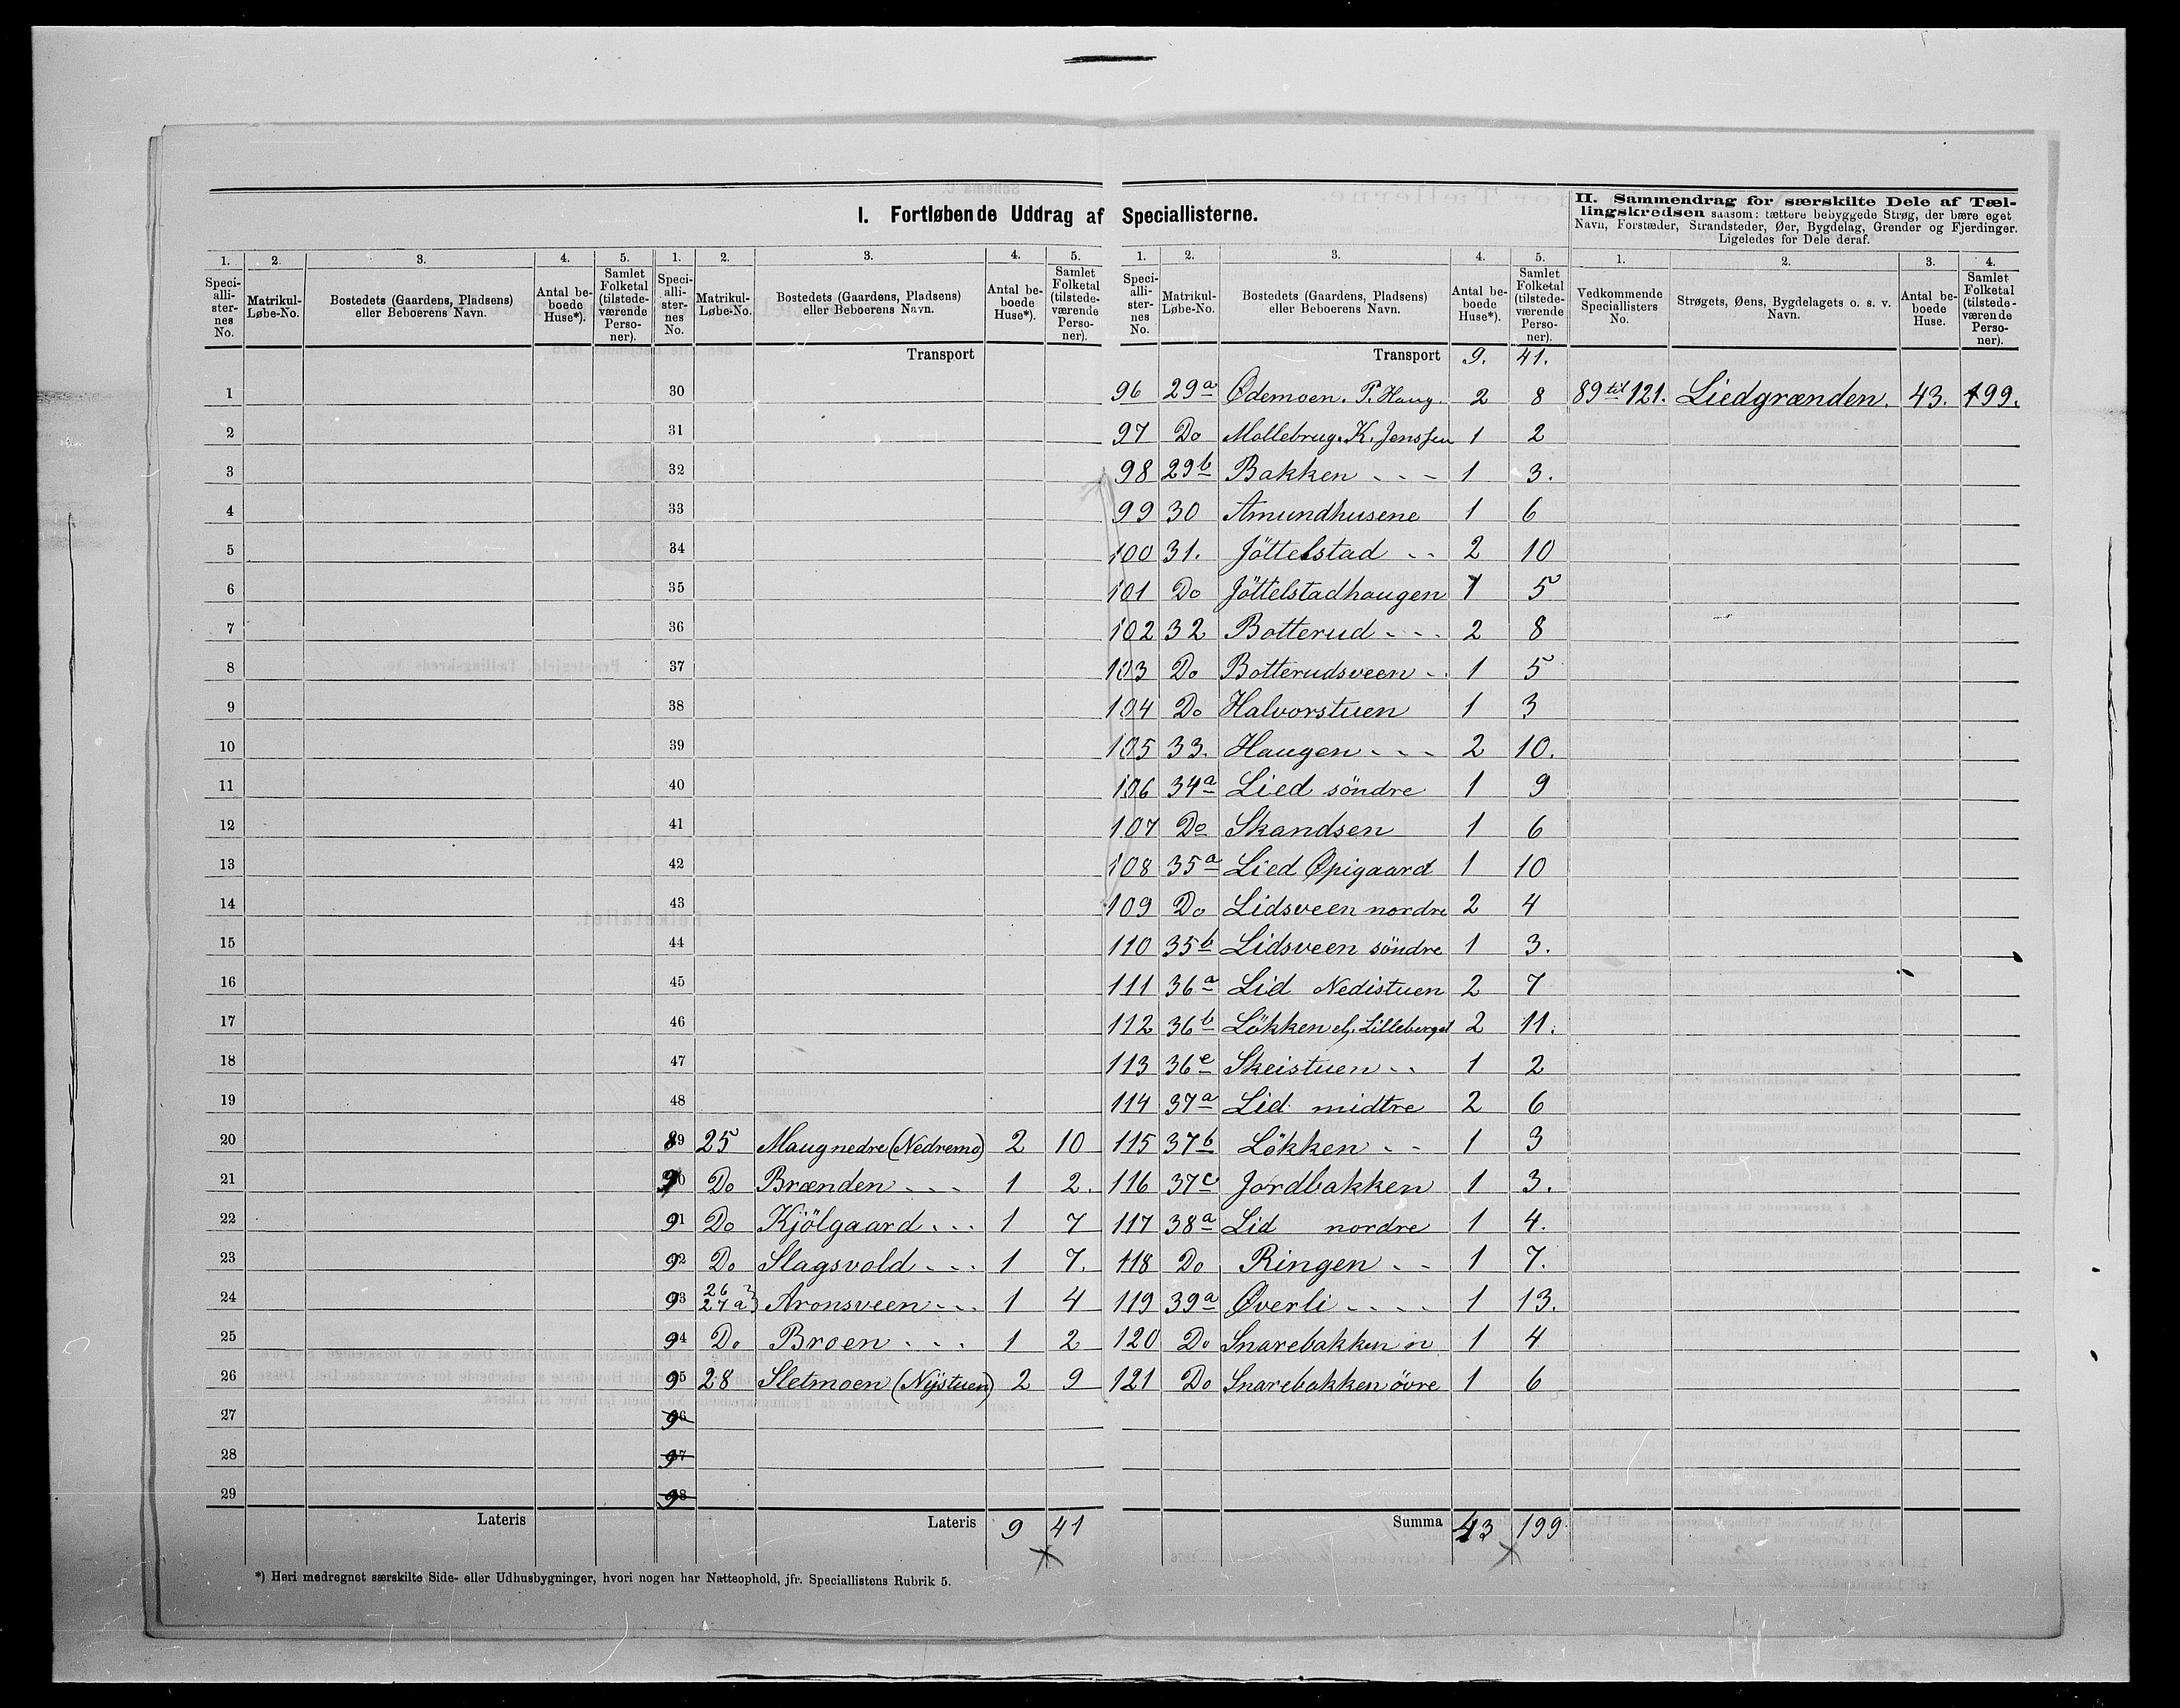 I. Fortløbende Uddrag af Speciallisterne.
II. Sammendrag for særskilte Dele af Tæl-
lingskredsen saasom: tættere bebyggede Strøg, der bære eget
Navn, Forstæder, Strandsteder, Øer, Bygdelag, Grender og Fjerdinger.
Ligeledes for Dele deraf.
1. 2. 3. 4. 5. 1. 2. 3. 4. 5. 1. 2. 3. 4. 5. 1. 2. 3. 4.
Speci-alli-ster-nes No. Matrikul-Løbe-No. Bostedets (Gaardens, Pladsens) eller Beboerens Navn. Antal be-boede Huse*). Samlet Folketal (tilstede-værende Perso-ner).
Speci-alli-ster-nes No. Matrikul-Løbe-No. Bostedets (Gaardens, Pladsens) eller Beboerens Navn. Antal be-boede Huse*). Samlet Folketal (tilstede-værende Perso-ner).
Speci-alli-ster-nes No. Matrikul-Løbe-No. Bostedets (Gaardens, Pladsens) eller Beboerens Navn. Antal be-boede Huse*). Samlet Folketal (tilstede-værende Perso-ner).
Vedkommende Speciallisters No. Strøgets, Øens, Bygdelagets o. s. v. Navn. Antal be-boede Huse. Samlet Folketal (tilstede-værende Perso-ner).
Transport Transport 9. 41.
1 30 96 29a Ødemoen. P. Haug. 2 8 89 til 121. Liedgrænden. 43. 199.
2 31 97 Do Mollebrug. K. Jenssen 1 2
3 32 98 29b Bakken 1 3.
4 33 99 30 Amundhusene 1 6
5 34 100 31. Jöttelstad 2 10
6 35 101 Do Jöttelstadhaugen 1 5
7 36 102 32 Botterud 2 8
8 37 103 Do Botterudsveen 1 5
9 38 104 Do Halvorstuen 1 3
10 39 105 33. Haugen 2 10.
11 40 106 34a Lied söndre 1 9
12 41 107 Do Skandsen 1 6
13 42 108 35a Lied Øpigaard 1 10
14 43 109 Do Lidsveen nordre 2 4
15 44 110 35b Lidsveen söndre 1 3.
16 45 111 36a Lid Nedistuen 2 7
17 46 112 36b Lökken el. Lilleberget 2 11.
18 47 113 36e Skeistuen 1 2
19 48 114 37a Lid midtre 2 6
20 89 25 Haug nedre (Nedremo) 2 10 115 37b Lökken 1 3
21 90 Do Brænden 1 2. 116 37c Jordbakken 1 3.
22 91 Do Kjölgaard 1 7 117 38a Lid nordre 1 4.
23 92 Do Slagsvold 1 7. 118 Do Ringen 1 7.
24 93 26 27a Aronsveen 1 4 119 39a Øverli 1 13.
25 94 Do Broen 1 2 120 Do Snarebakken n 1 4
26 95 28 Sletmoen (Nystuen) 2 9 121 Do Snarebakken övre 1 6
27 96
28 97
29 98
Lateris Lateris 9 41 Summa 43 199
*) Heri medregnet særskilte Side- eller Udhusbygninger, hvori nogen har Natteophold, jfr. Speciallistens Rubrik 5.